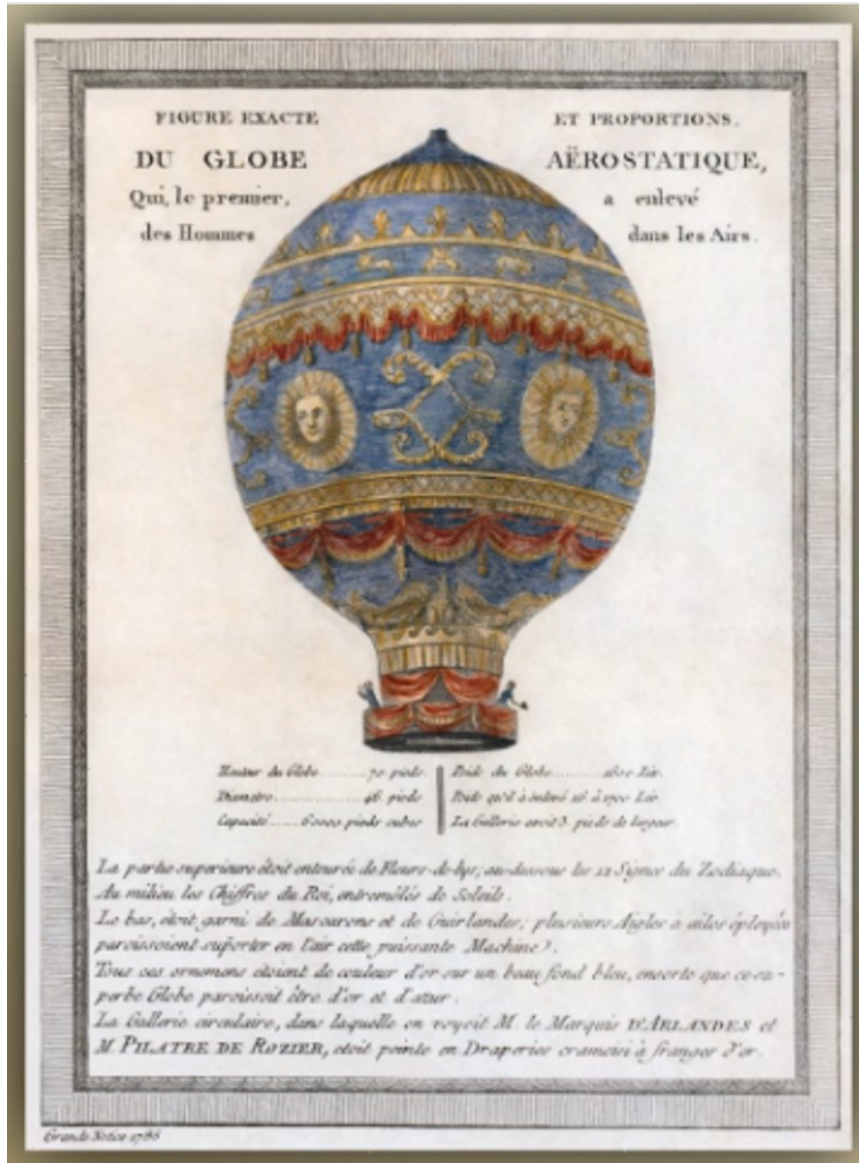 FIGURE EXACTE ET PROPORTIONS.
DU GLOBE AËROSTATIQUE,
Qui, le premier, a enlevé
des Hommes dans les Airs.
Hauteur du Globe ........ 70 pieds.
Diametre ........ 46 pieds
Capacité ...... 60000 pieds cubes
Poids du Globe ........ 1600 Liv.
Poids qu'il à enlevé 16 à 1700 Liv.
La Gallerie avoit 3. pieds de largeur.
La partie superieure étoit entourée de Fleurs-de-lys; au-dessous les 12 Signes du Zodiaque.
Au milieu les Chiffres du Roi, entremêlés de Soleils.
Le bas, étoit garni de Mascarons et de Guirlandes; plusieurs Aigles à ailes éployées
paroissoient suporter en l'air cette puissante Machine.
Tous ces ornemens étoient de couleur d'or sur un beau fond bleu, ensorte que ce su-
perbe Globe paroissoit être d'or et d'azur.
La Gallerie circulaire, dans laquelle on voyoit M. le Marquis D'ARLANDES et
M. PILATRE DE ROZIER, étoit peinte en Draperies cramoisi à franges d'or.